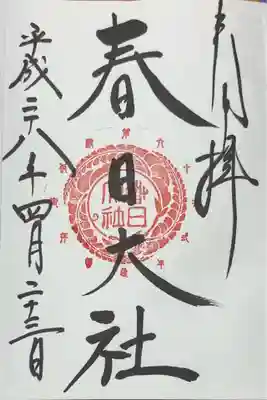 奉拝
春日大社
平成二十八年四月二十三日